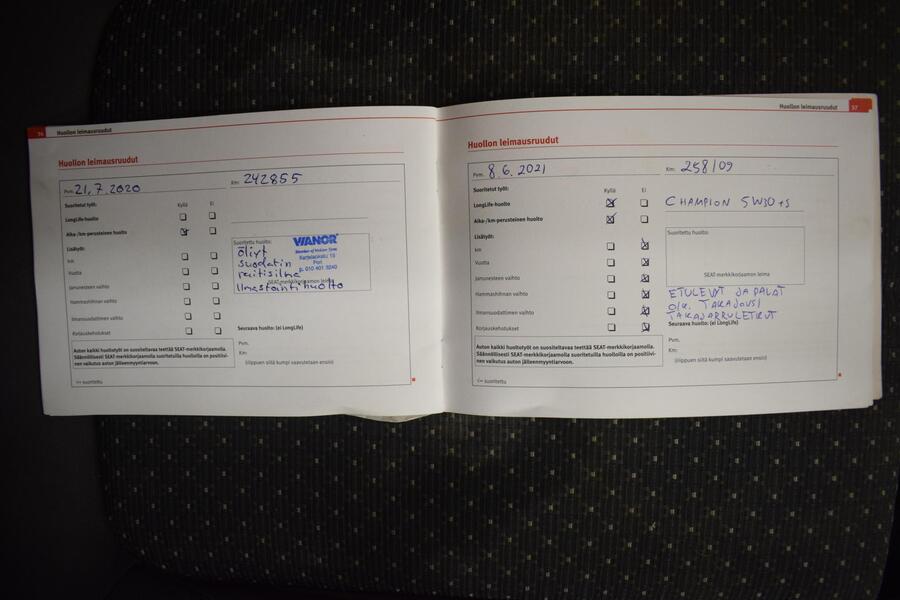 56 Huollon leimausruudut
Huollon leimausruudut
Pvm. 21.7.2020 Km: 242855
Suoritetut työt: Kyllä Ei
LongLife-huolto
Aika-/km-perusteinen huolto
Lisätyöt:
km
Vuotta
Jarrunesteen vaihto
Hammashihnan vaihto
Ilmansuodattimen vaihto
Korjauskehotukset
Suoritettu huolto:
VIANOR
Karjalankatu 13
Pori
p. 010 401 3240
Öljyt
suodatin
raitisilma
SEAT-merkkikorjaamon leima
Ilmastointihuolto
Seuraava huolto: (ei LongLife)
Pvm.
Km:
(riippuen siitä kumpi saavutetaan ensin)
Auton kaikki huoltotyöt on suositeltavaa teettää SEAT-merkkikorjaamolla.
Säännöllisesti SEAT-merkkikorjaamolla suoritetuilla huolloilla on positiivi-
nen vaikutus auton jälleenmyyntiarvoon.
= suoritettu
Huollon leimausruudut 57
Huollon leimausruudut
Pvm. 8.6.2021 Km: 258109
Suoritetut työt: Kyllä Ei
LongLife-huolto
CHAMPION 5W30
Aika-/km-perusteinen huolto
Lisätyöt:
km
Vuotta
Jarrunesteen vaihto
Hammashihnan vaihto
Ilmansuodattimen vaihto
Korjauskehotukset
Suoritettu huolto:
SEAT-merkkikorjaamon leima
ETULEVYT JA PALAT
TAKAJOUSI
TAKAJARRULETKUT
Seuraava huolto: (ei LongLife)
Pvm.
Km:
(riippuen siitä kumpi saavutetaan ensin)
Auton kaikki huoltotyöt on suositeltavaa teettää SEAT-merkkikorjaamolla.
Säännöllisesti SEAT-merkkikorjaamolla suoritetuilla huolloilla on positiivi-
nen vaikutus auton jälleenmyyntiarvoon.
= suoritettu